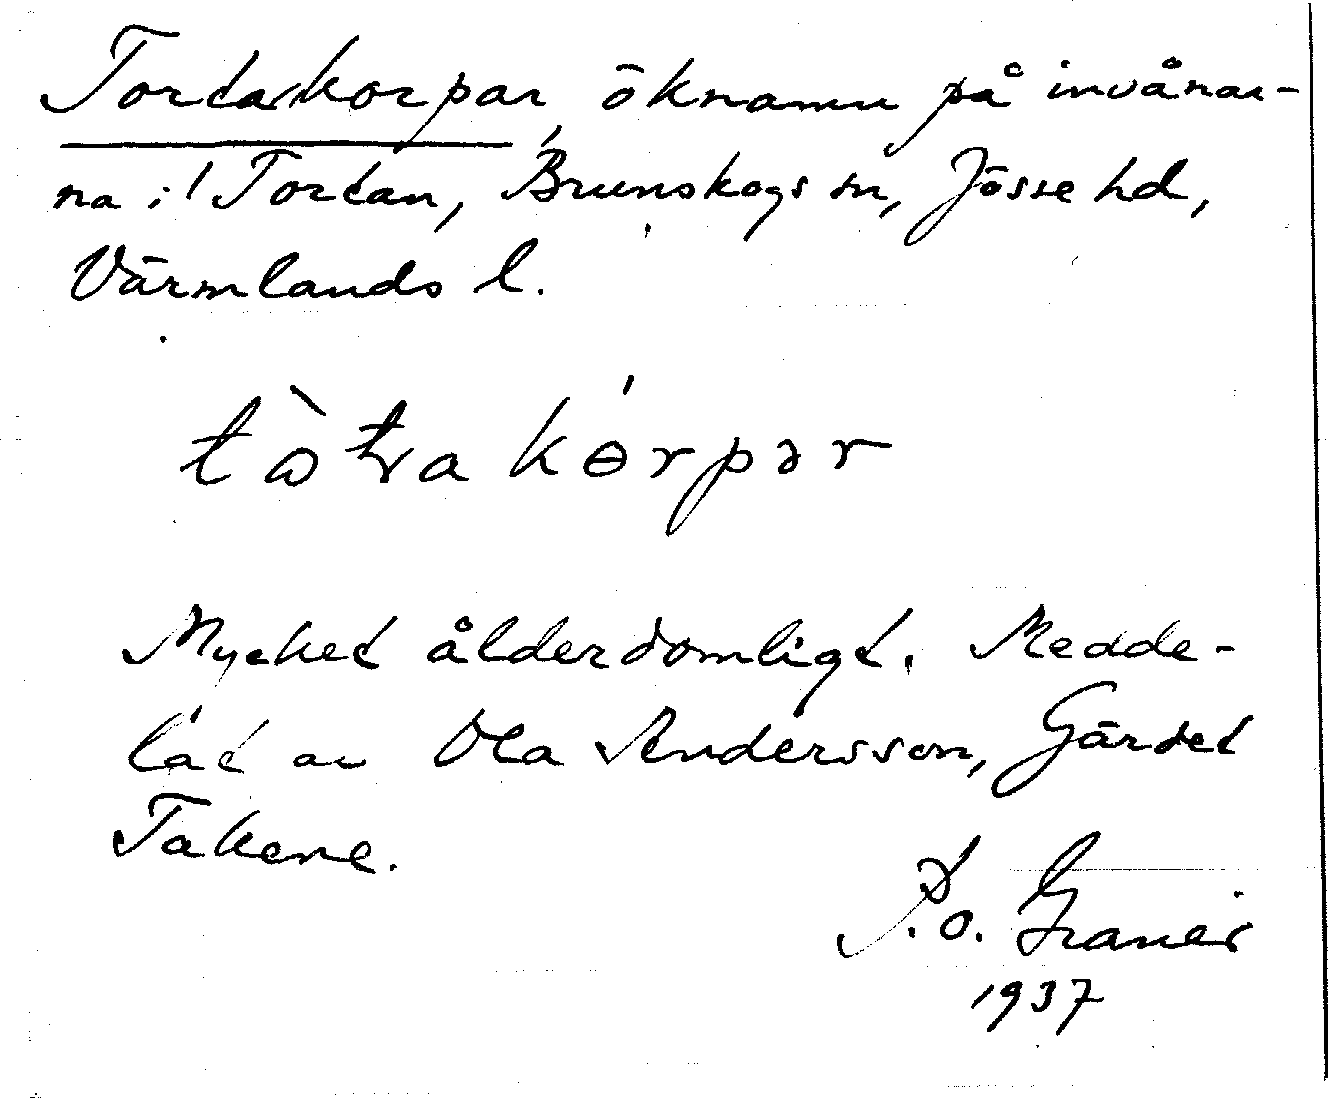 Tortakorpar, öknamn på invånar-
na i ! Tortan, Brunskogs sn, Jösse hd,
Värmlands l.
tòtrakórpər
Mycket ålderdomligt. Medde-
lat av Ola Andersson, Gärdet
Takene.
P.O. Granér
1937